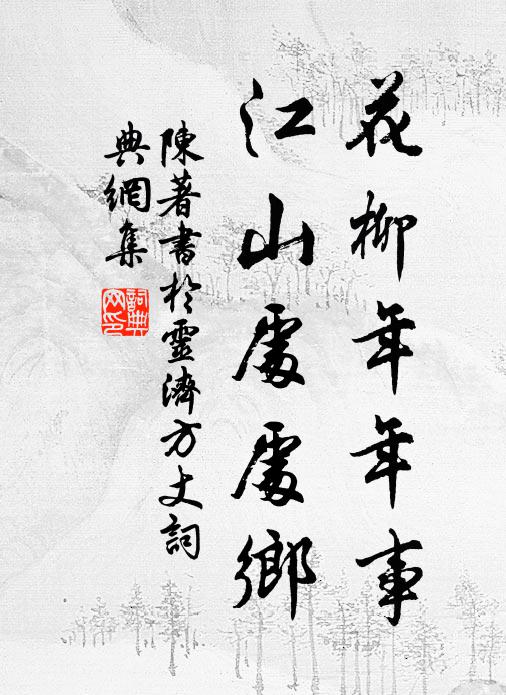 花柳年年事
江山處處鄉
陳著書於靈濟方丈詞
典網集
詞典
网印